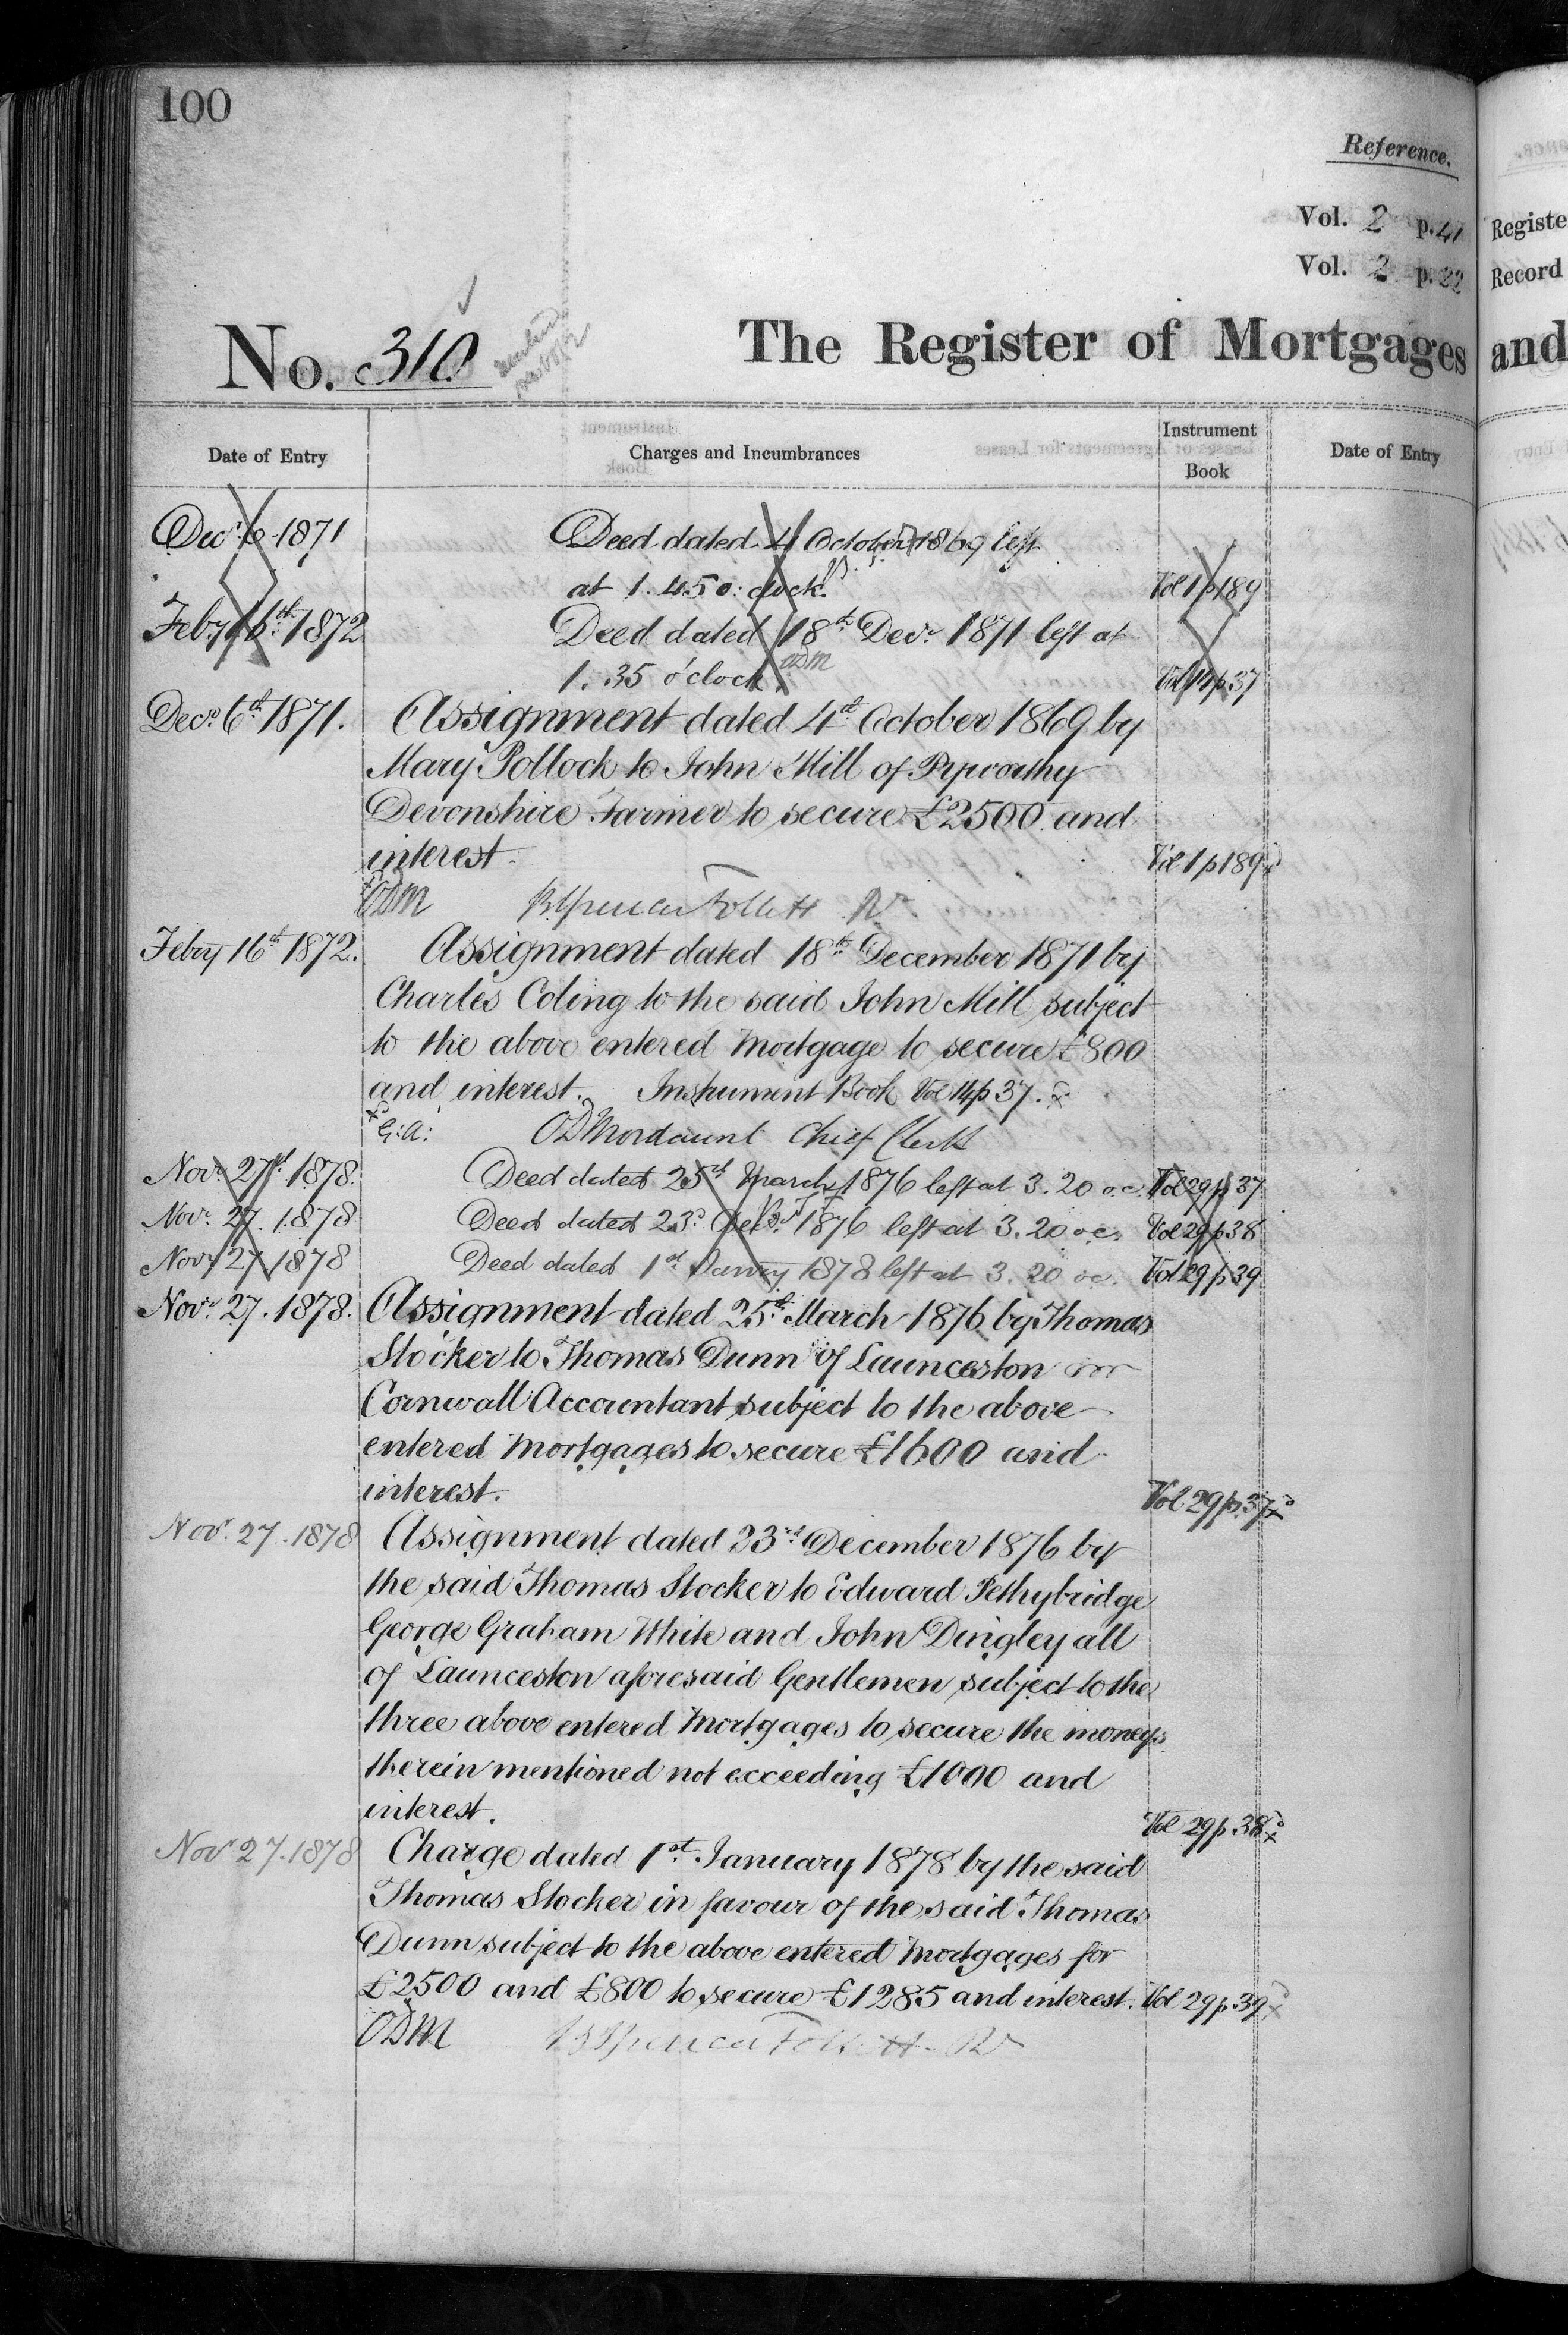 100
Reference.
Vol. 2 p. 41
Vol. 2 p. 22
Registe
Record
No. 310
The Register of Mortgages and
Date of Entry
Charges and Incumbrances
Instrument Book
Date of Entry
Decr. 6 1871 Deed dated 4 October 1869 left
at 1.45 o'clock. Vol 1 p 189
Feby 16th 1872 Deed dated 18th Decr. 1871 left at
1.35 o'clock. ODM Vol 14 p 37
Decr. 6th 1871. Assignment dated 4th October 1869 by
Mary Pollock to John Mill of Pyworthy
Devonshire Farmer to secure £2500 and
interest. Vol 1 p 189
ODM B Spencer Follett Rr
Feby 16th 1872. Assignment dated 18th December 1871 by
Charles Coling to the said John Mill subject
to the above entered Mortgage to secure £800
and interest. Instrument Book Vol 14 p 37.
G: A: ODMordaunt Chief Clerk
Novr. 27th 1878. Deed dated 25th March 1876 left at 3.20 o.c. Vol 29 p 37
Novr. 27. 1878 Deed dated 23d Decr. 1876 left at 3.20 o.c. Vol 29 p 38
Novr 27 1878 Deed dated 1st Janry 1878 left at 3.20 oc. Vol 29 p 39
Novr. 27. 1878. Assignment dated 25th March 1876 by Thomas
Stocker to Thomas Dunn of Launceston
Cornwall Accountant subject to the above
entered Mortgages to secure £1600 and
interest. Vol 29 p 37
Nov. 27. 1878 Assignment dated 23rd December 1876 by
the said Thomas Stocker to Edward Pethybridge
George Graham White and John Dingley all
of Launceston aforesaid Gentlemen subject to the
three above entered Mortgages to secure the moneys
therein mentioned not exceeding £1000 and
interest. Vol 29 p. 38
Nov 27. 1878 Charge dated 1st January 1878 by the said
Thomas Stocker in favour of the said Thomas
Dunn subject to the above entered Mortgages for
£2500 and £800 to secure £1285 and interest. Vol 29 p. 39
ODM B Spencer Follett Rr